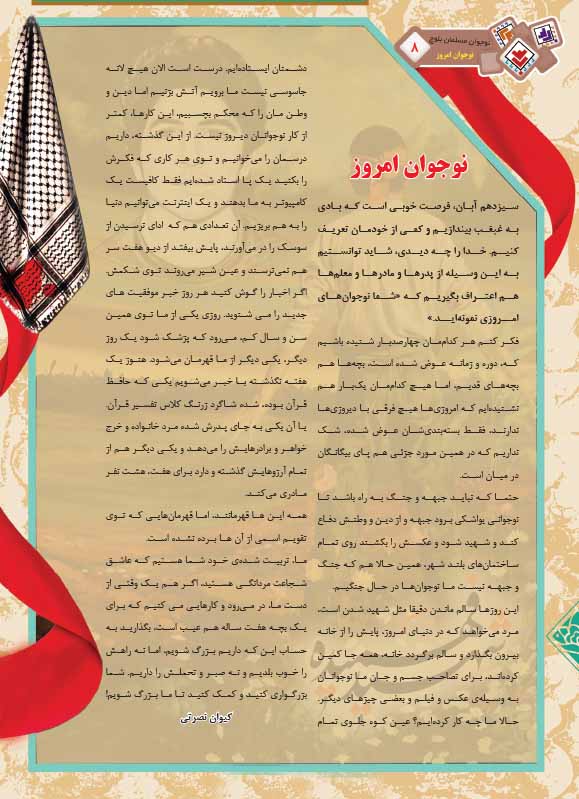 نوجوان مسلمان بلوچ
نوجوان امروز
۸
نوجوان امروز
سیزدهم آبان، فرصت خوبی است که بادی
به غبغب بیندازیم و کمی از خودمان تعریف
کنیم. خدا را چه دیدی، شاید توانستیم
به این وسیله از پدرها و مادرها و معلم‌ها
هم اعتراف بگیریم که «شما نوجوان‌های
امروزی نمونه‌اید.»
فکر کنم هر کدام‌مان چهارصدبار شنیده باشیم
که، دوره و زمانه عوض شده است، بچه‌ها هم
بچه‌های قدیم، اما هیچ کدام‌مان یک‌بار هم
نشنیده‌ایم که امروزی‌ها هیچ فرقی با دیروزی‌ها
ندارند، فقط بسته‌بندی‌شان عوض شده، شک
نداریم که در همین مورد جزئی هم پای بیگانگان
در میان است.
حتما که نباید جبهه و جنگ به راه باشد تا
نوجوانی یواشکی برود جبهه و از دین و وطنش دفاع
کند و شهید شود و عکسش را بکشند روی تمام
ساختمان‌های بلند شهر، همین حالا هم که جنگ
و جبهه نیست ما نوجوان‌ها در حال جنگیم.
این روزها سالم ماندن دقیقا مثل شهید شدن است،
مرد می‌خواهد که در دنیای امروز، پایش را از خانه
بیرون بگذارد و سالم برگردد خانه، همه جا کمین
کرده‌اند، برای تصاحب جسم و جان ما نوجوانان
به وسیله‌ی عکس و فیلم و بعضی چیزهای دیگر.
حالا ما چه کار کرده‌ایم؟ عین کوه جلوی تمام
دشمنان ایستاده‌ایم. درست است الان هیچ لانه
جاسوسی نیست ما برویم آتش بزنیم اما دین و
وطن مان را که محکم بچسبیم، این کارها، کمتر
از کار نوجوانان دیروز نیست. از این گذشته، داریم
درسمان را می‌خوانیم و توی هر کاری که فکرش
را بکنید یک پا استاد شده‌ایم فقط کافیست یک
کامپیوتر به ما بدهند و یک اینترنت می‌توانیم دنیا
را به هم بریزیم. آن تعدادی هم که ادای ترسیدن از
سوسک را در می‌آورند، پایش بیفتد از دیو هفت سر
هم نمی‌ترسند و عین شیر می‌روند توی شکمش.
اگر اخبار را گوش کنید هر روز خبر موفقیت های
جدید را می شنوید. روزی یکی از ما توی همین
سن و سال کم، می‌رود که پزشک شود یک روز
دیگر، یکی دیگر از ما قهرمان می‌شود. هنوز یک
هفته نگذشته با خبر می‌شویم یکی که حافظ
قرآن بوده، شده شاگرد زرنگ کلاس تفسیر قرآن.
یا آن یکی به جای پدرش شده مرد خانواده و خرج
خواهر و برادرهایش را می‌دهد و یکی دیگر هم از
تمام آرزوهایش گذشته و دارد برای هفت، هشت نفر
مادری می‌کند.
همه این ها قهرمانند، اما قهرمان‌هایی که توی
تقویم اسمی از آن ها برده نشده است.
ما، تربیت شده‌ی خود شما هستیم که عاشق
شجاعت مردانگی هستید، اگر هم یک وقتی از
دست ما، در می‌رود و کارهایی می کنیم که برای
یک بچه هفت ساله هم عیب است، بگذارید به
حساب این که داریم بزرگ شویم. اما نه راهش
را خوب بلدیم و نه صبر و تحملش را داریم. شما
بزرگواری کنید و کمک کنید تا ما بزرگ شویم!
کیوان نصرتی